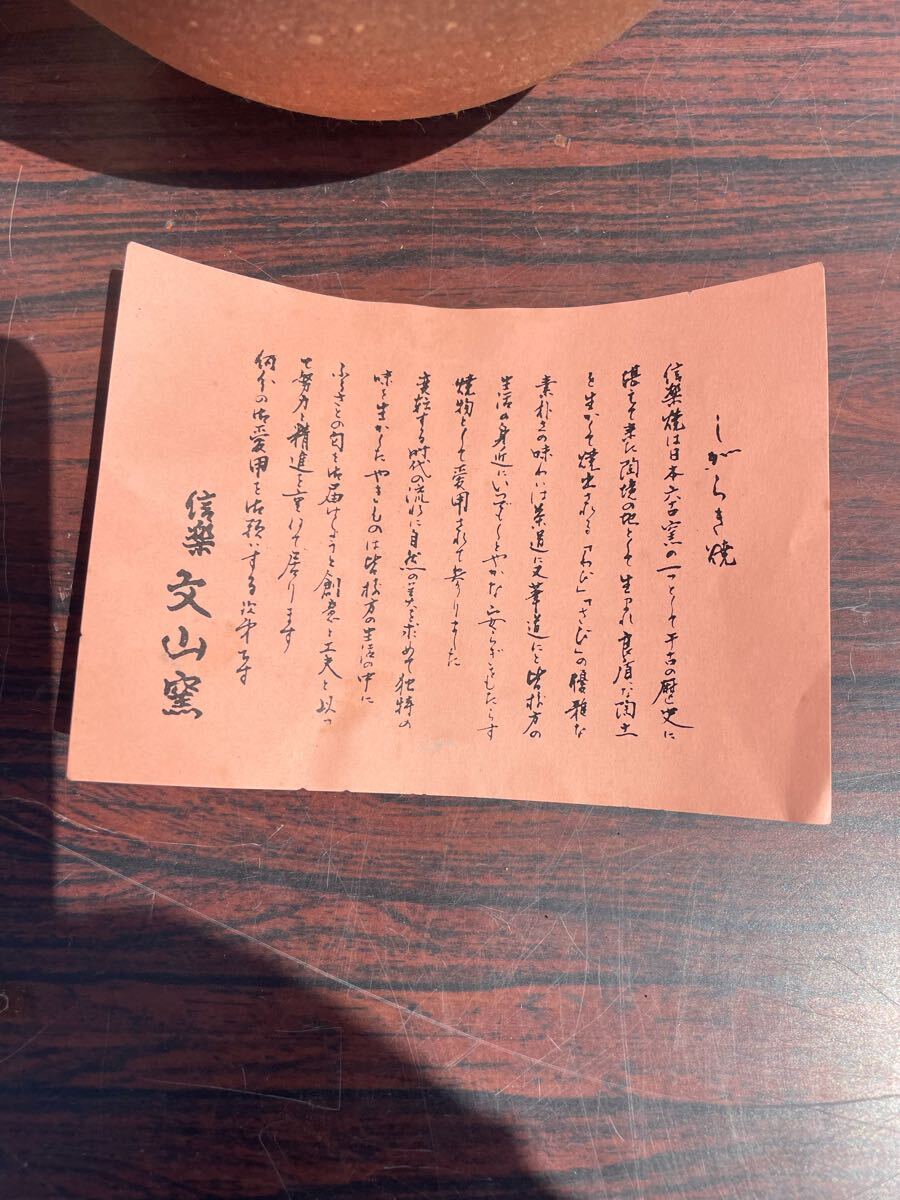 しがらき焼
信楽焼は日本六古窯の一つとして千古の歴史に
堪えて来た陶境の地として生れ良質な陶土
を生かして焼出される「わび」「さび」の優雅な
素朴さの味わいは茶道に又華道にと皆様方の
生活の身近にいつもしっとりとやかな安らぎをもたらす
焼物として愛用されて参りました
変転する時代の流れに自然の美を求めて独特の
味を生かしたやきものは皆様方の生活の中に
ふるさとの匂を御届けしようと創意と工夫を以っ
て努力と精進を重ねて居ります
何分の御愛用を御願いする次第です
信楽 文山窯